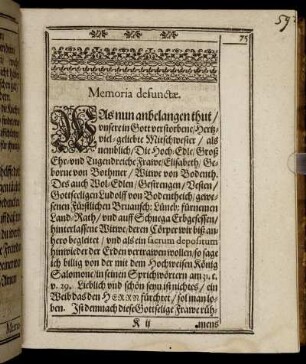 75
59
Memoria defunctæ.
WAs nun anbelangen thut /
unsere in Gott verstorbene / Hertz
viel-geliebte Mitschwester / als
nemblich / Die Hoch-Edle / Groß
Ehr- und Tugendreiche Frawe / Elisabeth / Ge-
borne von Bothmer / Witwe von Bodenth.
Des auch Wol-Edlen / Gestrengen / Vesten /
Gottseeligen Ludolff von Bodentheich / gewe-
senen Fürstlichen Braunsch: Lüneb: fürnemen
Land-Rath / und auff Schnega Erbgesessen /
hinterlassene Witwe; deren Cörper wir biß an-
hero begleitet / und als ein sacrum depositum
hinwieder der Erden vertrawen wollen / so sage
ich billig von der mit dem Hochweisen König
Salomone / in seinen Sprichwörtern am 31. c.
v. 29. Lieblich und schön seyn ist nichtes / ein
Weib das den HERRN fürchtet / sol man lo-
ben. Ist demnach diese Gottselige Frawe rüh-
K ij
mens